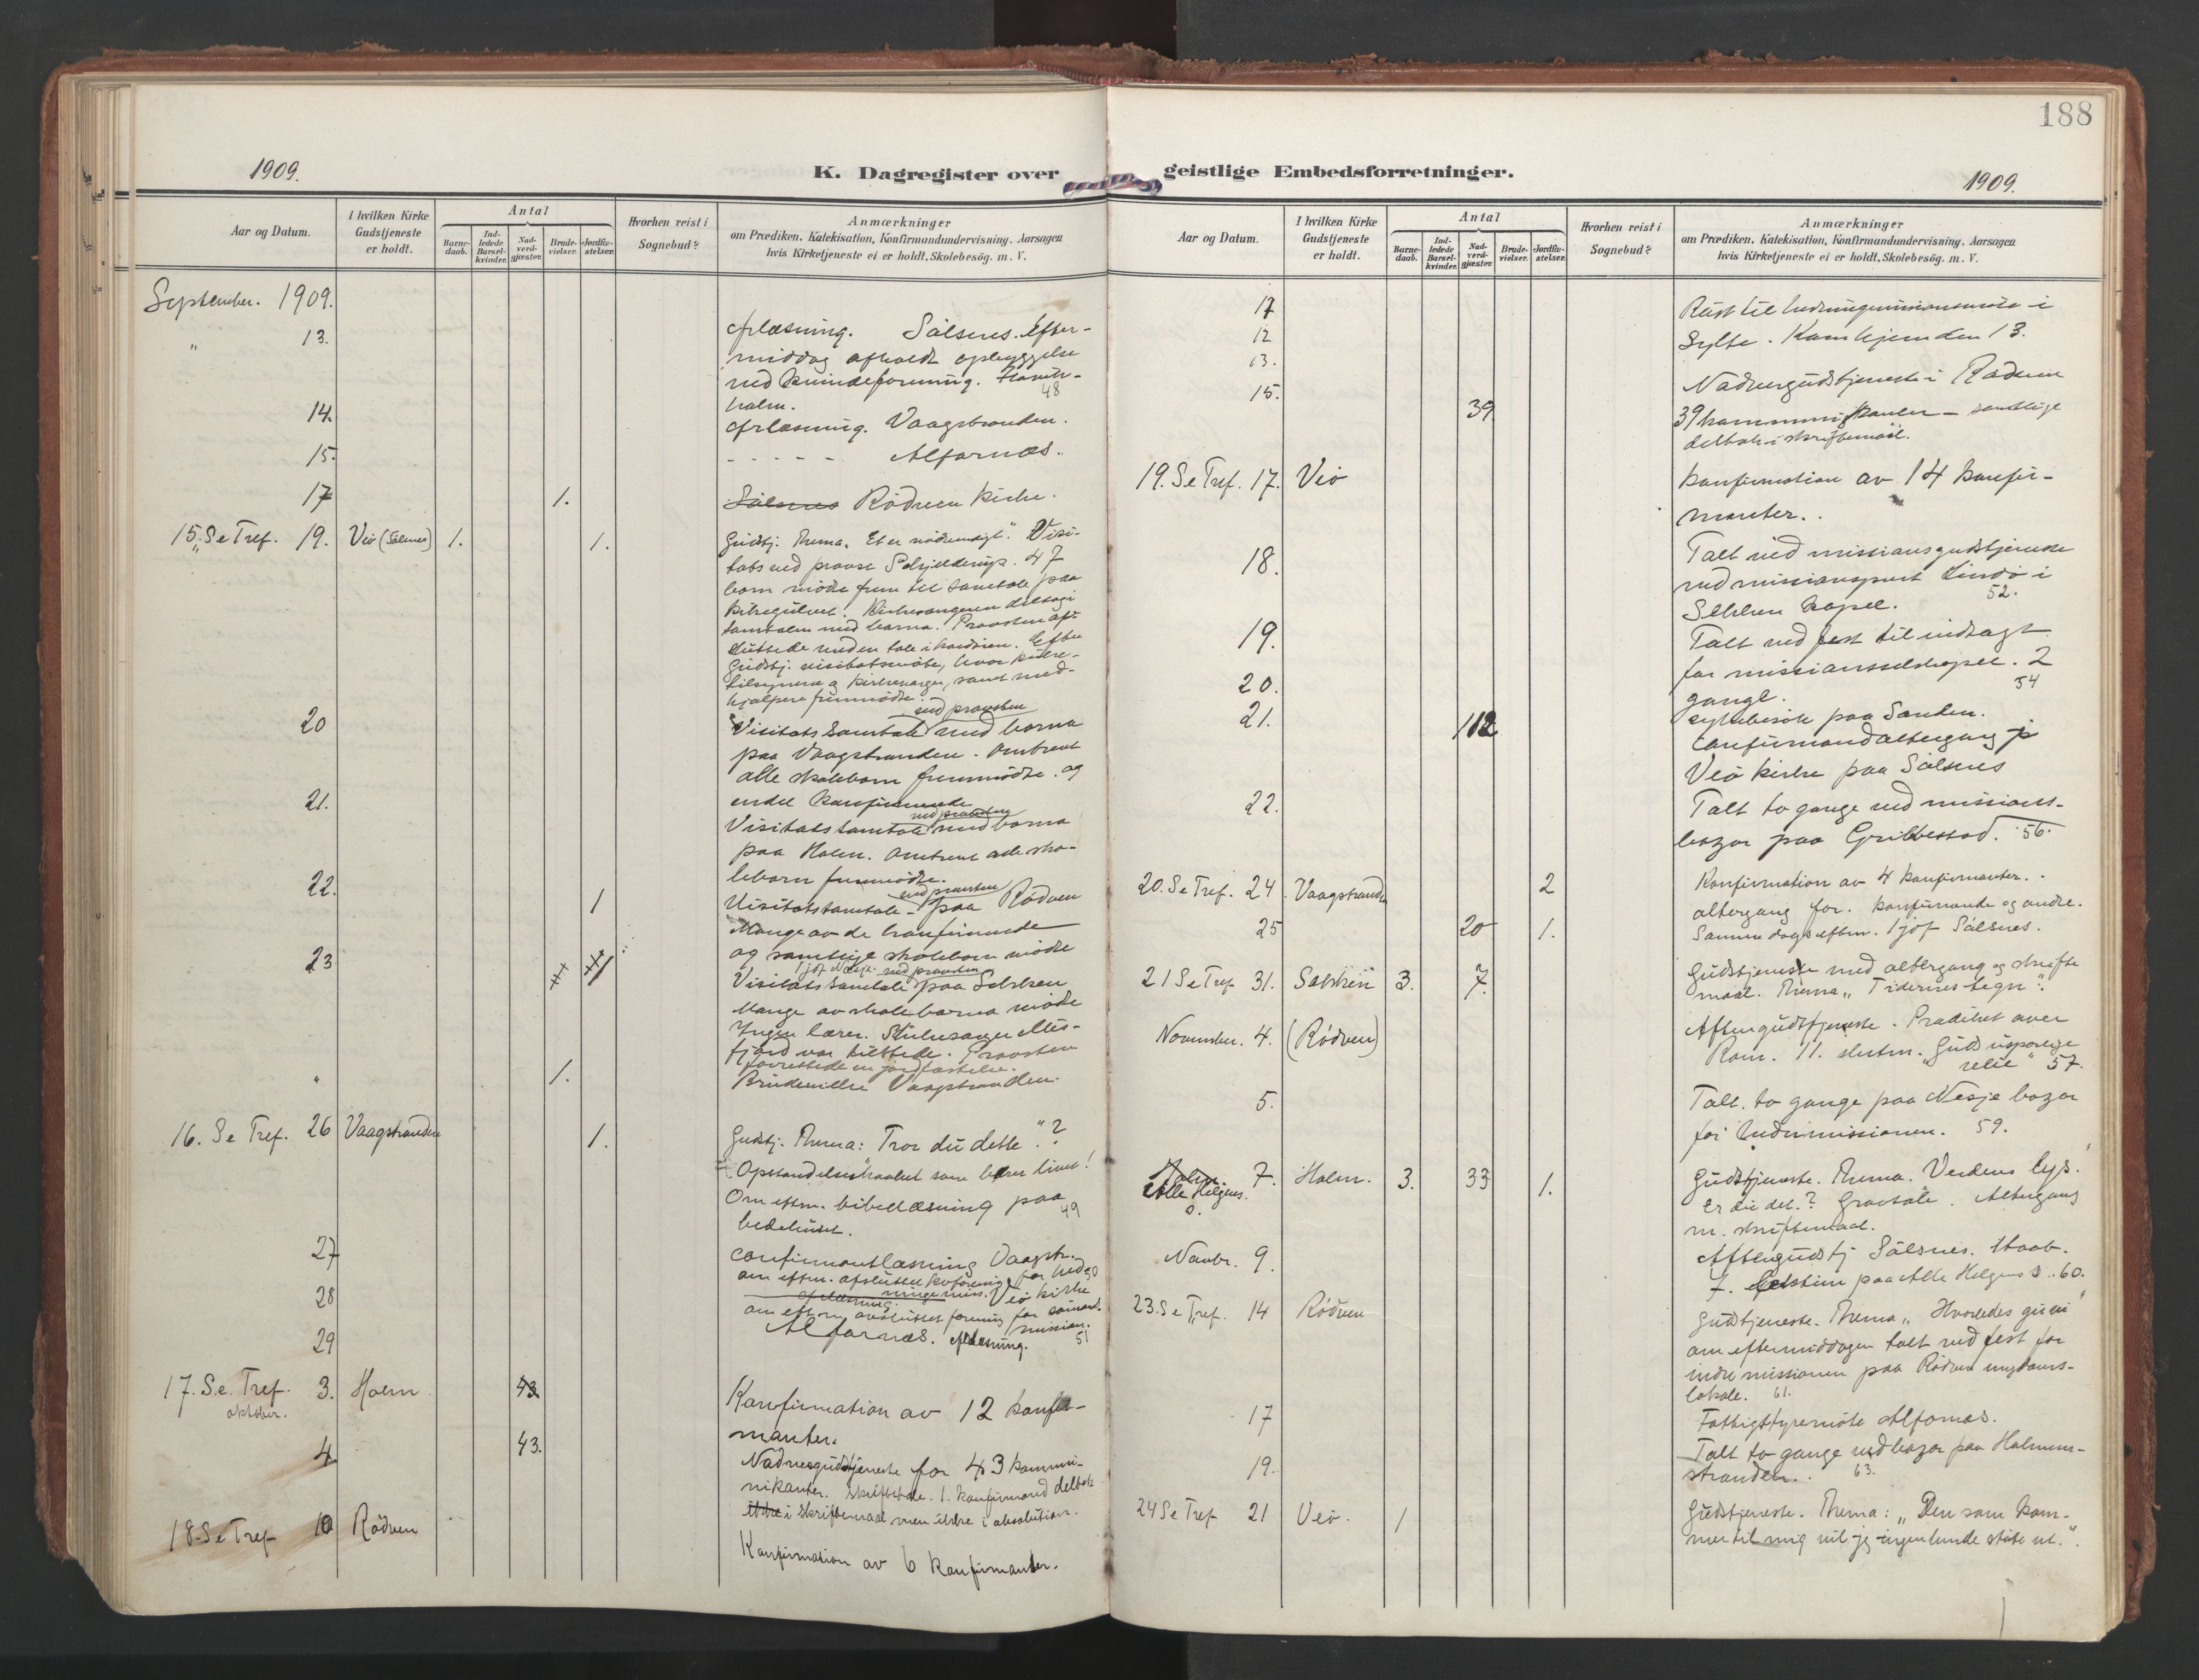 188
1909.
K. Dagregister over
geistlige Embedsforretninger.
1909.
Aar og Datum.
I hvilken Kirke
Gudstjeneste
er holdt.
Antal
Barne-
daab.
Ind-
ledede
Barsel-
kvinder.
Nad-
verd-
gjæster.
Brude-
vielser.
Jordfæ-
stelser.
Hvorhen reist i
Sognebud?
Anmærkninger
om Prædiken, Katekisation, Konfirmandundervisning, Aarsagen
hvis Kirketjeneste ei er holdt, Skolebesög. m. V.
September. 1909.
" 13.
oplæsning. Sålsnes. Efter-
middag afholdt opbyggelse
ved kvindeforening.
holm. 48
14.
oplæsning. Vaagstranden.
15.
- - - - - Alfarnæs.
17 1.
Sålsnes Rödven kirke.
15. S e Tref. 19. Veö (Sålsnes) 1. 1.
Gudstj. Thema. "Et er nödvendigt". Visi-
tats ved provst Schjelderup. 47
born mödte frem til samtale paa
kirkegulvet. Kirkesangeren deltog i
samtalen med barna. Provsten af-
sluttede med en tale i kordören. Efter
Gudstj. visitatsmöte, hvor kirke-
tilsynene og kirkeverger, samt med-
hjælpere fremmödte.
20
ved provsten
Visitats samtale med barna
paa Vaagstranden. Omtrent
alle skoleborn fremmödte. og
endel konfirmerede
21.
ved provsten
Visitats samtale med barna
paa Holm. Omtrent alle sko-
leborn fremmödte.
22. 1
ved provsten
Visitatssamtale - paa Rödven
Mange av de konfirmerede
og samtlige skoleborn mödte
23 1
1 jof Nesje. ved provsten
Visitats samtale paa Sekken
Mange av skolebarna mödte
Ingen lærer. Kirkesanger Mis-
fjord var tilstede. Provsten
forrettede en jordfæstelse.
" 1.
Brudevielse Vaagstranden.
16. S e Tref. 26 Vaagstranden 1.
Gudstj. Thema: Tror du dette"?
Opstandelseshaabet som bærer livet!
Om eftm. bibellæsning paa
bedehuset. 49
27
Confirmantlæsning Vaagstr.
om eftm. afsluttet kvforening for hed-
ningemiss. 50
28
oplæsning. Veö kirke
om eftm avsluttet forening for sömands-
mission.
29
Alfarnæs. oplæsning. 51
17. S.e. Tref. 3. Holm 43
oktober.
Konfirmation av 12 konfir-
manter.
4 43.
Nadvergudstjeneste for 43 kommu-
nikanter. Skriftetale. 1. konfirmand deltok
ikke i skriftemaal men ikke i absolution.
18. S e Tref 10 Rödven
Konfirmation av 6 konfirmanter.
Aar og Datum.
I hvilken Kirke
Gudstjeneste
er holdt.
Antal
Barne-
daab.
Ind-
ledede
Barsel-
kvinder.
Nad-
verd-
gjæster.
Brude-
vielser.
Jordfæ-
stelser.
Hvorhen reist i
Sognebud?
Anmærkninger
om Prædiken, Katekisation, Konfirmandundervisning, Aarsagen
hvis Kirketjeneste ei er holdt, Skolebesög. m. V.
17
Reist til Indremissionsmöte i
12
Sylte. Kom hjem den 13.
13.
15. 39
Nadvergudstjeneste i Rödven
39 kommunikanter - samtlige
deltok i skriftemaal.
19. S e Tref. 17. Veö
Konfirmation av 14 konfir-
manter.
18.
Talt ved missionsgudstjeneste
ved missionsprest Lindö i
Sekken kapel. 52.
19.
Talt ved fest til indtægt
for missionsselskapet. 2
gange. 54
20.
sykebesök paa Sanden.
21. 112
Confirmandaltergang i
Veö kirke paa Sålsnes
22.
Talt to gange ved missions-
bazar paa Gribbestad. 56.
20. S e Tref. 24 Vaagstranden 2
Konfirmation av 4 konfirmanter.
25 20 1.
altergang for konfirmerede og andre.
Samme dags eftm. 1 jof Sålsnes.
21 S e Tref 31. Sekken 3. 7.
Gudstjeneste med altergang og skrifte
maal. Thema "Tidernes tegn".
November. 4. (Rödven)
Aftengudstjeneste. Prædiket over
Rom. 11. slutn. "Guds usporlige
veie" 57.
5.
Talt to gange paa Nesje bazar
for Indremissionen. 59.
Alle Helgens 7. Holm. 3. 33 1.
Gudstjeneste. Thema. Verdens lys.
Er du det? Gravtale. Altergang
m. skriftemaal.
Novbr. 9.
Aftengudstj Sålsnes. Haab.
7. paa Alle Helgens s. 60.
23. S e Tref. 14 Rödven
Gudstjeneste. Thema "Hvorledes gi vi"
om eftermiddagen talt ved fest for
indremissionen paa Rödven ungdoms-
lokale. 61.
17
Fattigstyremöte Alfarnæs.
19.
Talt to gange ved bazar paa Holmem-
stranden. 63.
24 S e Tref 21 Veö. 1
Gudstjeneste. Thema: "Den som kom-
mer til mig vil jeg ingenlunde stöte ut."